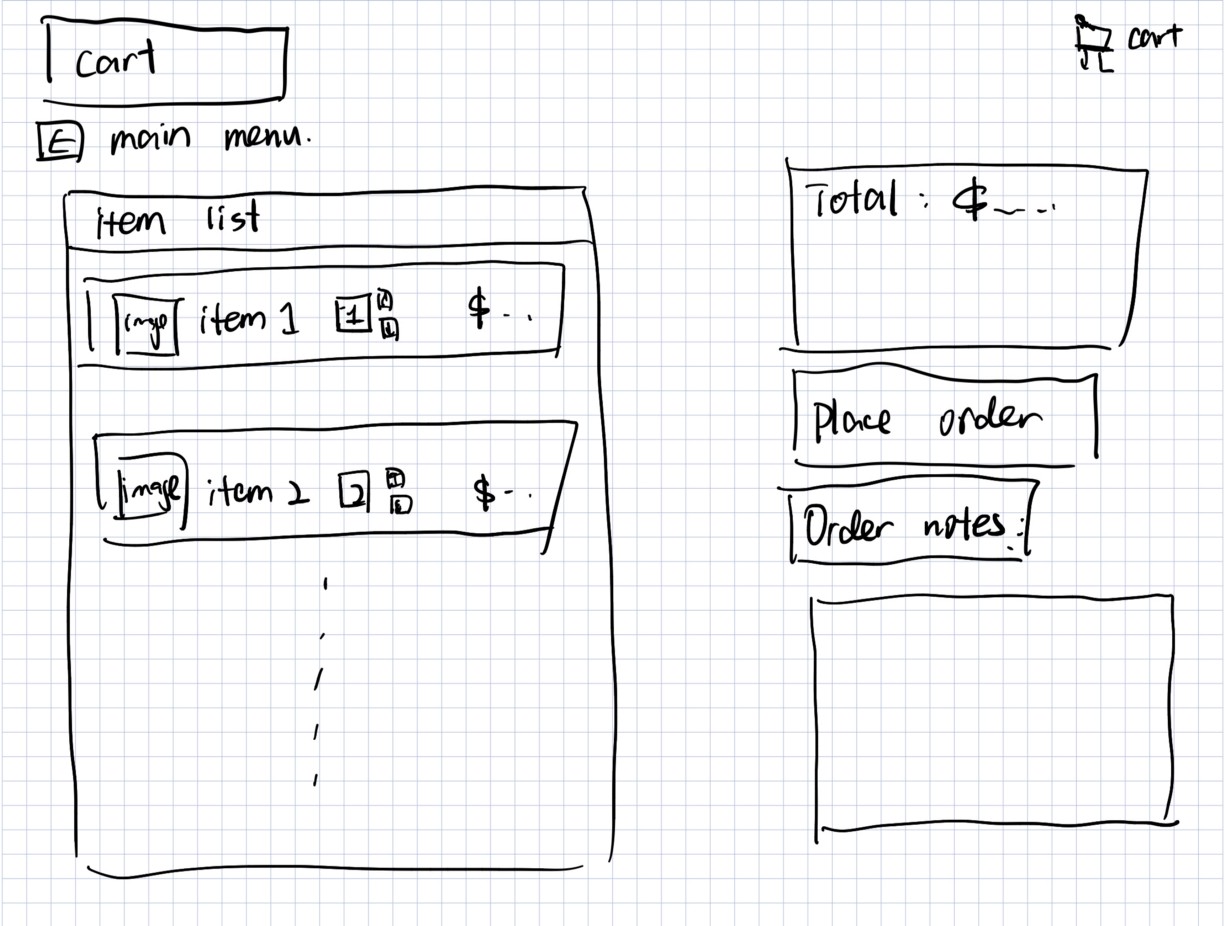 cart
cart
E main menu.
item list
image item 1 1 $..
image item 2 2 $-..
Total : $
Place order
Order notes :